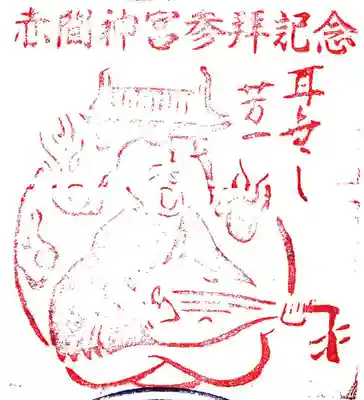 赤間神宮参拝記念
耳なし
芳一